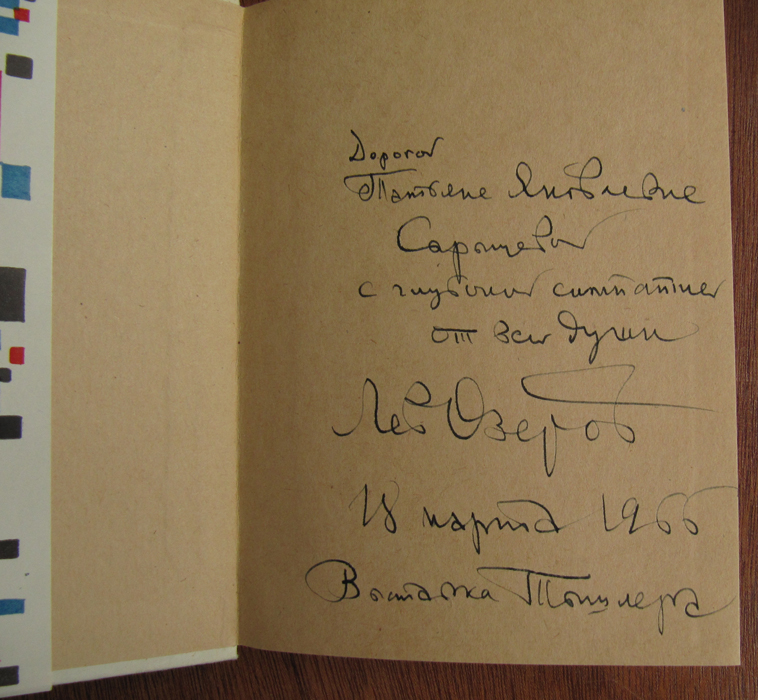 Дорогой
Татьяне Яковлевне
Сарычевой
с глубокой симпатией
от всей души
Лев Озеров
18 марта 1966
Выставка Тышлера